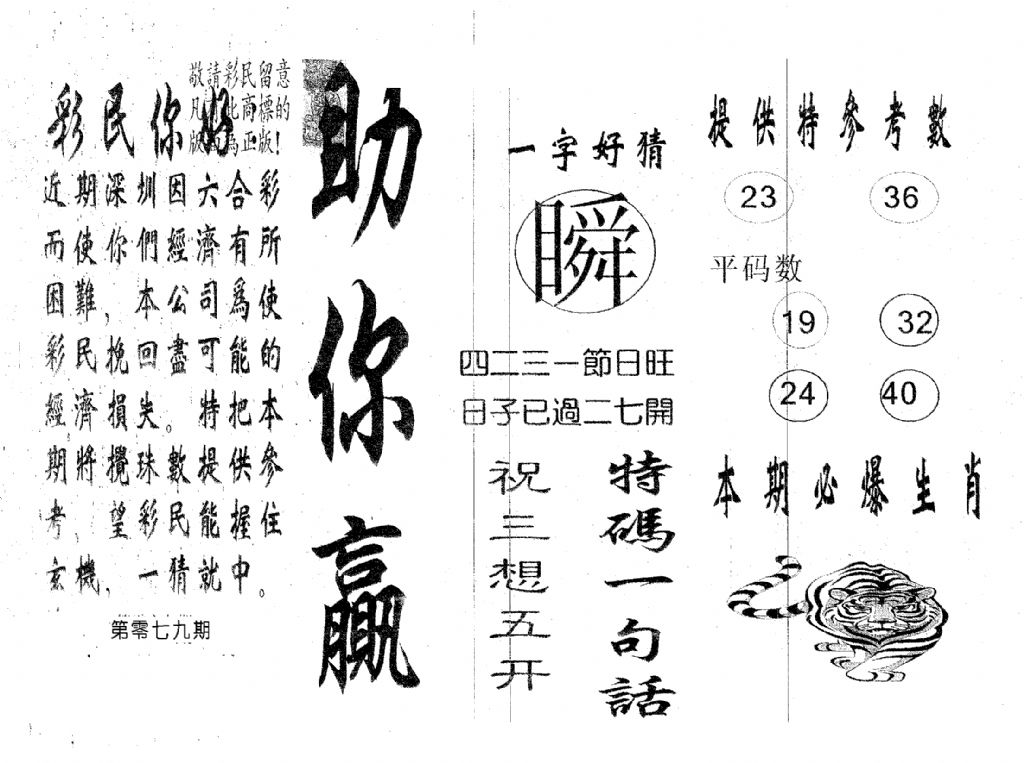 敬請彩民留意
凡 此商標的
版 為正版！
彩民你好
近期深圳因六合彩
而使你們經濟有所
困難，本公司為使
彩民挽回盡可能的
經濟損失。特把本
期將攪珠數提供參
考，望彩民能握住
玄機，一猜就中。
第零七九期
助你贏
一字好猜
瞬
四二三一節日旺
日子已過二七開
特碼一句話
祝三想五开
提供特參考數
23 36
平码数
19 32
24 40
本期必爆生肖